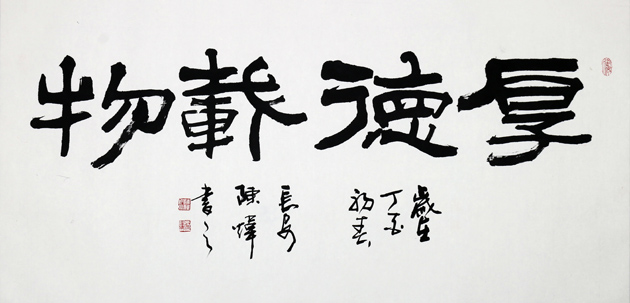 厚德載物
歲在
丁酉
初春
長安
陳
書之